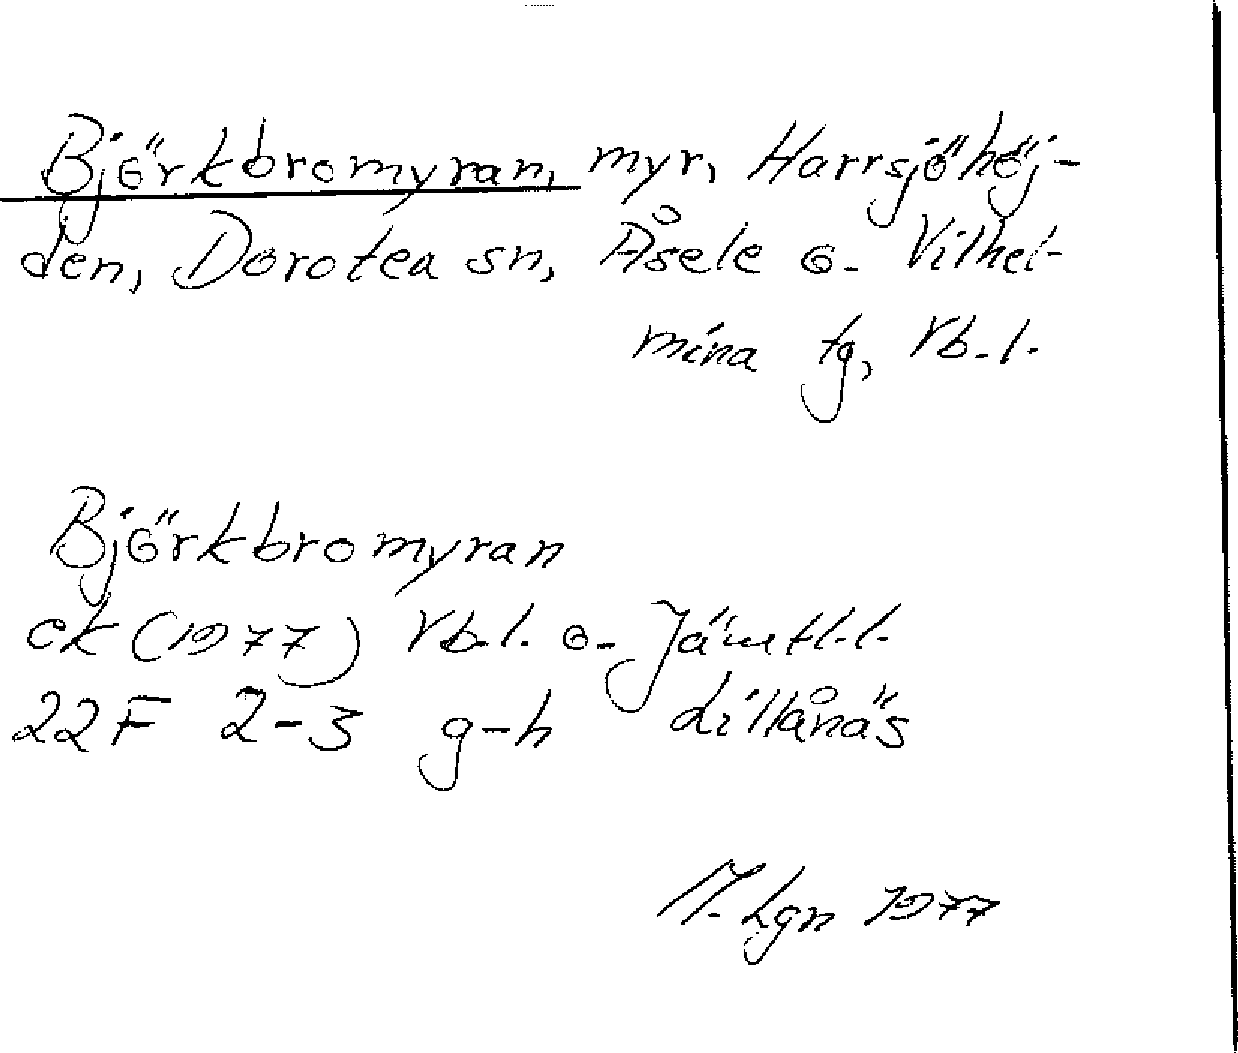 Björkbromyran, myr, Harrsjöhöj-
den, Dorotea sn, Åsele o. Vilhel-
mina tg, Vb. l.
Björkbromyran
ek (1977) Vb. l. o. Jämtl. l.
22F 2-3 g-h Lillånäs
M. Lgn 1977